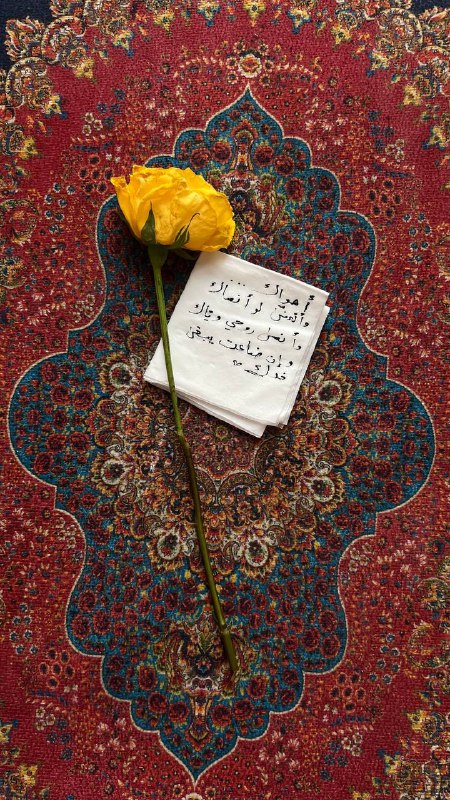 أهواك...
وأتمنى لو أنساك
وأنسى روحي وياك
وإن ضاعت يبقى
فداك